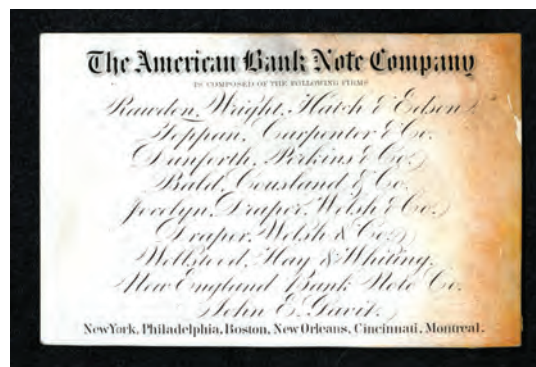 The American Bank Note Company
IS COMPOSED OF THE FOLLOWING FIRMS
Rawdon, Wright, Hatch & Edson.
Toppan, Carpenter & Co.
Danforth, Perkins & Co.
Bald, Cousland & Co.
Jocelyn, Draper, Welsh & Co.
Draper, Welsh & Co.
Wellstood, Hay & Whiting.
New England Bank Note Co.
John E. Gavit.
New York, Philadelphia, Boston, New Orleans, Cincinnati, Montreal.